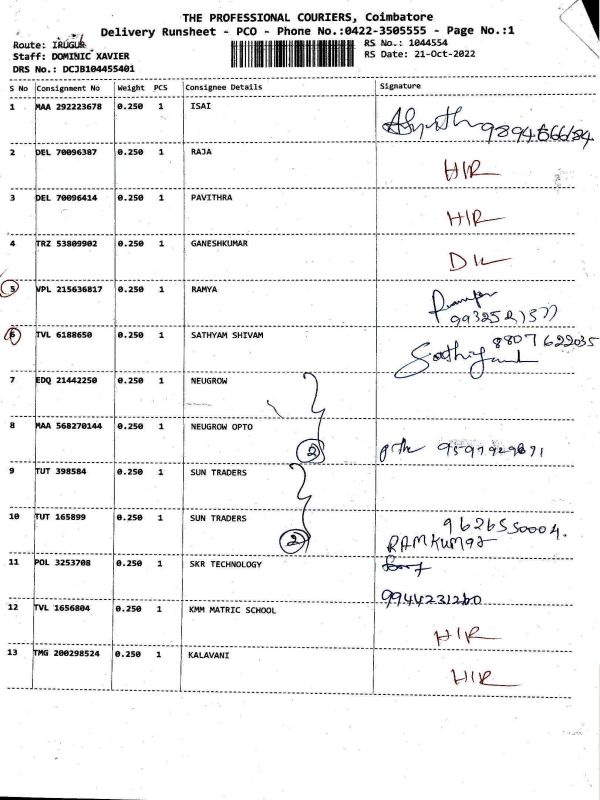 THE PROFESSIONAL COURIERS, Coimbatore
Delivery Runsheet - PCO - Phone No.:0422-3505555 - Page No.:1
Route: IRUGUR
Staff: DOMINIC XAVIER
DRS No.: DCJB104455401
RS No.: 1044554
RS Date: 21-Oct-2022
S No Consignment No Weight PCS Consignee Details Signature
1 MAA 292223678 0.250 1 ISAI
2 DEL 70096387 0.250 1 RAJA HIR
3 DEL 70096414 0.250 1 PAVITHRA HIR
4 TRZ 53809902 0.250 1 GANESHKUMAR DIL
5 VPL 215636817 0.250 1 RAMYA
6 TVL 6188650 0.250 1 SATHYAM SHIVAM 8807622035
7 EDQ 21442250 0.250 1 NEUGROW
8 MAA 568270144 0.250 1 NEUGROW OPTO 2
9 TUT 398584 0.250 1 SUN TRADERS
10 TUT 165899 0.250 1 SUN TRADERS 2 9626550004.
RAMKUMAR
11 POL 3253708 0.250 1 SKR TECHNOLOGY
9944231260
12 TVL 1656804 0.250 1 KMM MATRIC SCHOOL HIR
13 TMG 200298524 0.250 1 KALAVANI HIR